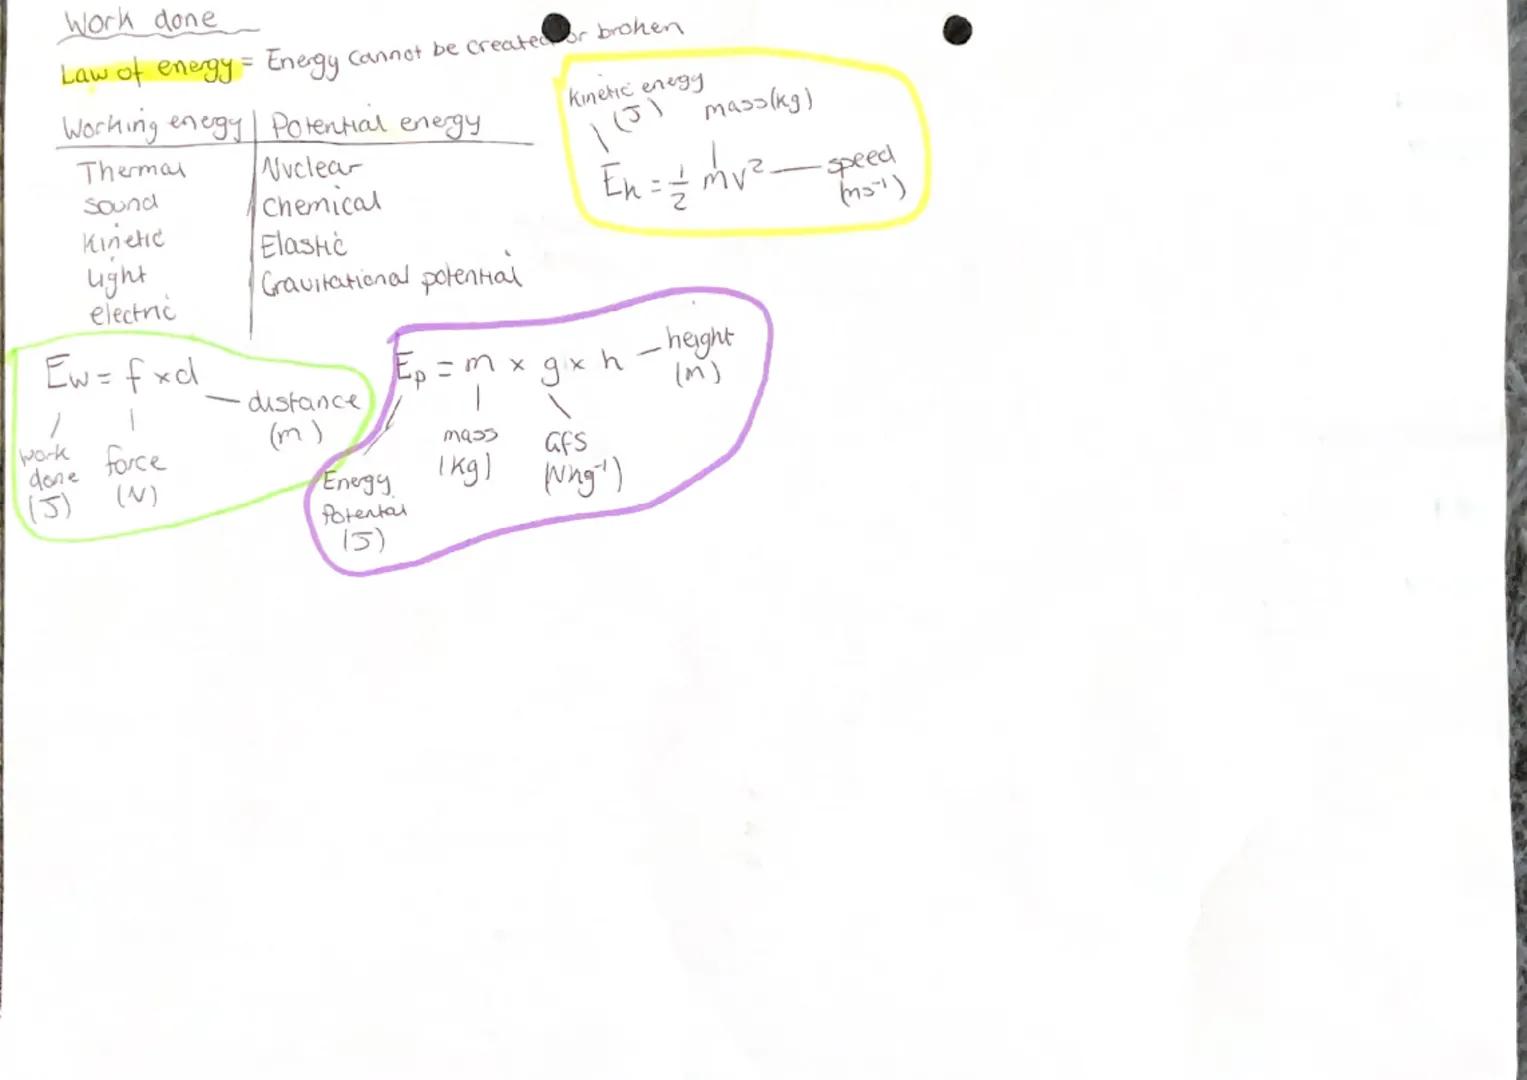 Work done
Law of energy = Energy cannot be created or broken
Working energy | Potential energy
Thermal | Nuclear
sound | chemical
Kinetic | Elastic
Light | Gravitational potential
electric
Kinetic energy
(J) mass(kg)
Ek = 1/2 mv² — speed
(ms⁻¹)
Ew = f × d
— distance
(m)
work done
(J)
force
(N)
Ep = m × g × h — height
(m)
mass
(kg)
GFS
(Nkg⁻¹)
Energy
Potential
(J)